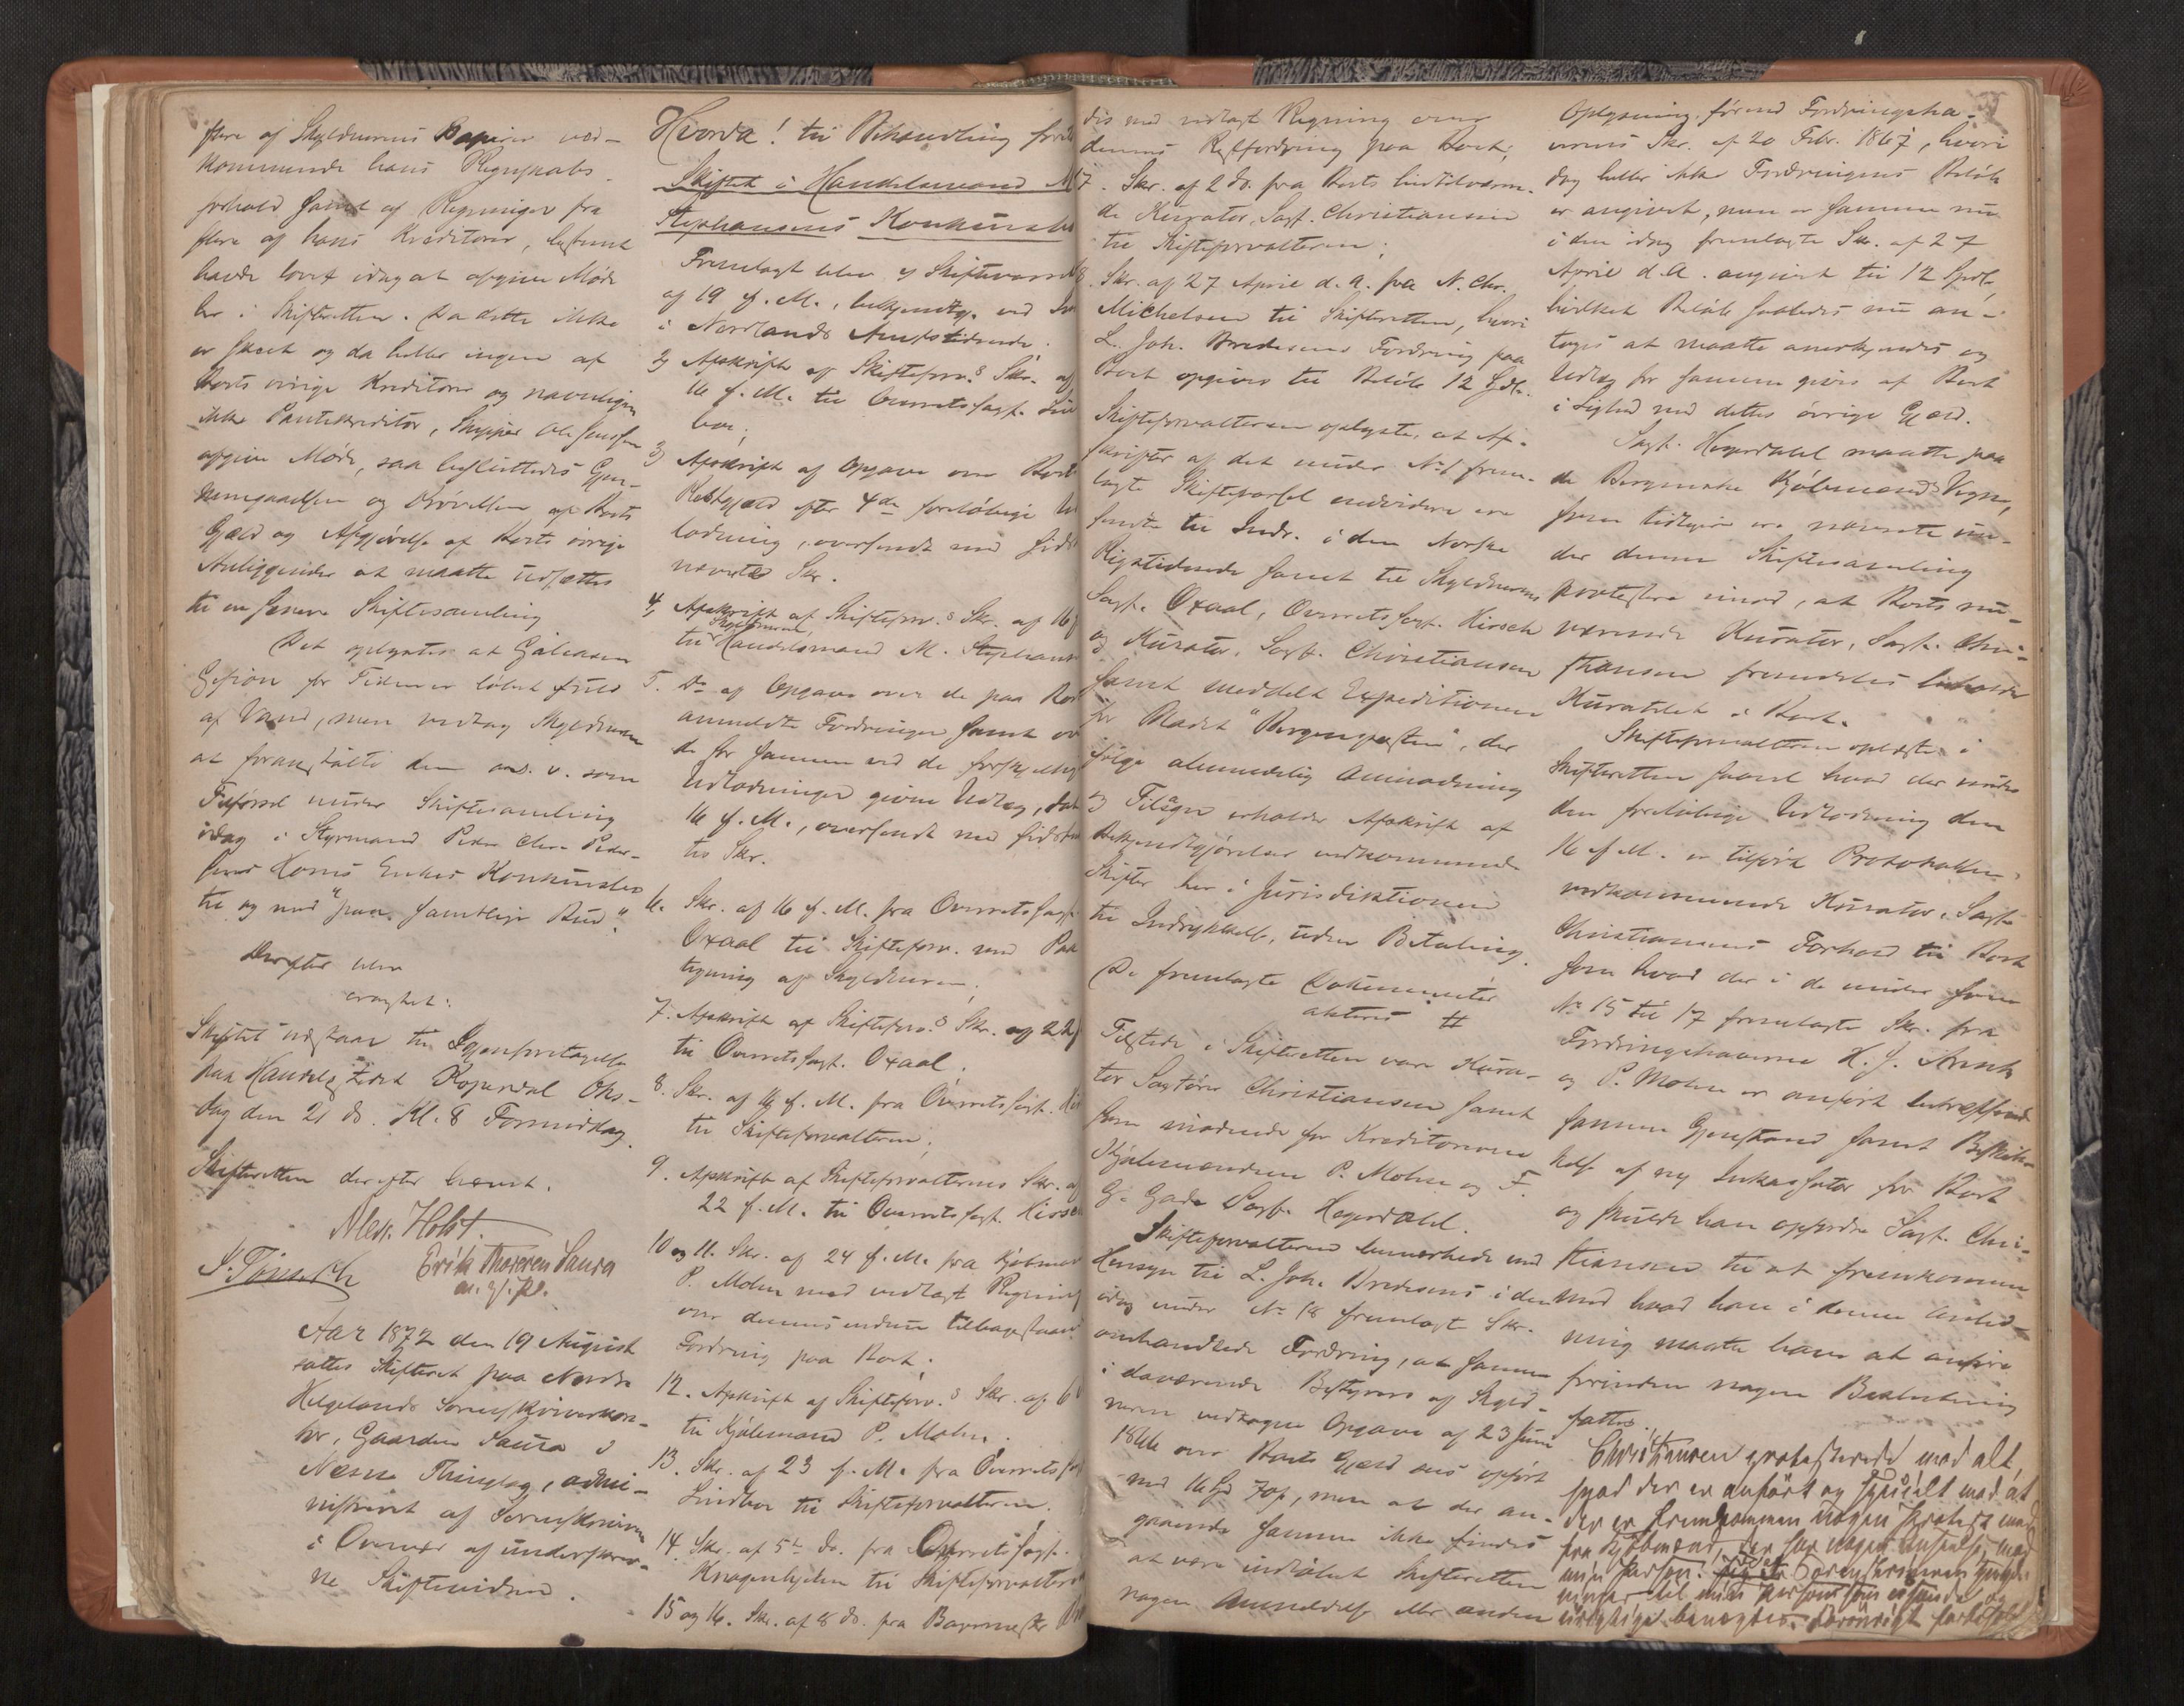 flere af Skyldnerens Papirer ved-
kommende hans Regnskabs-
forhold samt af Regninger fra
flere af hans Kreditorer, bestemt
havde lovet idag at afgive Møde
her i Skifteretten. Da dette ikke
er skeet og da heller ingen af
Boets øvrige Kreditorer og navnligen
ikke Pantekreditor, Skipper Ole Jenssen
afgive Møde, saa besluttedes Gjen-
nemgaaelsen og Prøvelsen af Boets
Gjæld og Afgjørelse af Boets øvrige
Anliggender at maatte udsættes
til en senere Skiftesamling
Det oplystes at Galeasen
Gefion for Tiden er løbet fuld
af Vand, men vedtog Skyldneren
at foranstalte den m. v. som
Tilførsel under Skiftesamling
idag i Styrmand Peder Chr. Peder-
sens Konkursbo
til og med "paa samtlige Bud".
Derefter blev
eragtet:
Skiftet udstaar til Gjenforetagelse
paa Handelsstedet Kopardal Ons-
dag den 21 ds. Kl. 8 Formiddag.
Skifteretten derefter hævet.
Alex. Holst.
Erik Thoresen Saura
m. p. P.
Aar 1872 den 19 August
sattes Skifteret paa Nordre
Helgelands Sorenskriverkon-
tor, Gaarden Saura i
Nesna Thinglag, admi-
nistreret af Sorenskriveren
i Overvær af underskrev-
ne Skiftevidner.
Hvorda! til Behandling foretoges
Skiftet i Handelsmand M.
Stephansens Konkursbo
Fremlagt blev 1) Skiftevarsel
af 19 f. M., bekjendtg. ved
i Nordlands Amtstidende.
2) Afskrift af Skifteforv.s Skr. af
16 f. M. til Overretssagf. Lind-
boe;
3) Afskrift af Opgave over Boets
Restgjæld efter 4de foreløbige Ud-
lodning, oversendt med sidst-
nævnte Skr.
4, Afskrift af Skifteforv.s Skr. af 16 f
til Skyldneren, Handelsmand M. Stephansen
5. Do af Opgave over de paa Boet
anmeldte Fordringer samt over
de for samme ved de forskjellige
Udlodninger givne Udlæg, dat.
16 f. M., oversendt med sidstnævn-
te Skr.
6. Skr. af 16 f. M. fra Overretssagf.
Oxaal til Skifteforv. med Paa-
tegning af Skyldneren;
7. Afskrift af Skifteforv.s Skr. af 22 f
til Overretssagf. Oxaal.
8. Skr. af 16 f. M. fra Overretssagf.
til Skifteforvalteren;
9. Afskrift af Skifteforvalterens Skr. af
22 f. M. til Overretssagf. Hirsch
10 og 11. Skr. af 24 f. M. fra Kjøbmand
P. Mohn med vedlagt Regning
over dennes endnu tilbagestaaende
Fordring paa Boet.
12. Afskrift af Skifteforv.s Skr. af 6
til Kjøbmand P. Mohn.
13. Skr. af 23 f. M. fra Overretssagf
Lindboe til Skifteforvalteren.
14. Skr. af 5te ds. fra Overretssagf.
Knagenhjelm til Skifteforvalteren
15 og 16. Skr. af 8 ds. fra Bagermester
des med vedlagt Regning over
dennes Restfordring paa Boet;
17. Skr. af 2 ds. fra Boets hidtilværen-
de Kurator, Sagf. Christiansen
til Skifteforvalteren;
18. Skr. af 27 April d. A. fra N. Chr.
Michelsen til Skifteretten, hvori
L. Joh. Bredesens Fordring paa
Boet opgives til Beløb 12 Spdlr.
Skifteforvalteren oplyste, at Af-
skrifter af det under No 1 frem-
lagte Skiftevarsel endvidere ere
sendte til Indr. i den Norske
Rigstidende samt til Skyldnerens
Sagf. Oxaal, Overretssagf. Hirsch
og Kurator, Sagf. Christiansen
samt meddelt Expeditionen
for Bladet "Bergensposten", der
ifølge almindelig Anmodning
og Tilsagn erholder Afskrift af
Bekjendtgjørelser vedkommende
Skifter her i Jurisdiktionen
til Indrykkelse, uden Betaling.
De fremlagte Dokumenter
akteres #
Tilstede i Skifteretten vare Kura-
tor Sagfører Christiansen samt
som mødende for Kreditorerne
Kjøbmændene P. Mohn og F.
G. Gade Sagf. Hegerdahl.
Skifteforvalteren bemærkede med
Hensyn til L. Joh. Bredesens i den
idag under No 18 fremlagte Skr.
omhandlede Fordring, at samme
i daværende Bestyrers og Skyld-
neren vedtagne Opgave af 23 Juni
1866 over Boets Gjæld sees opført
med 16 Spd 70 s, men at der an-
gaaende samme ikke findes
at være indløbet Skifteretten
nogen Anmeldelse eller anden
Oplysning, førend Fordringsha-
verens Skr. af 20 Febr. 1867, hvori
dog heller ikke Fordringens Beløb
er angivet, men er samme nu
i den idag fremlagte Skr. af 27
April d. A. angivet til 12 Spdl.,
hvilket Beløb saaledes nu an-
toges at maatte anerkjendes og
Udlæg for samme gives af Boet
i Lighed med dettes øvrige Gjæld.
Sagf. Hegerdahl maatte paa
de Bergenske Kjøbmænds Vegne,
som tidligere ere nævnte un-
der denne Skiftesamling
protestere imod, at Boets nu-
værende Kurator, Sagf. Chri-
stiansen fremdeles beholder
Kuratelet i Boet.
Skifteforvalteren oplæste i
Skifteretten saavel hvad der under
den foreløbige Udlodning den
16 f. M. er tilført Protokollen
vedkommende Kurator, Sagf.
Christiansens Forhold til Boet
som hvad der i de under
No 15 til 17 fremlagte Skr. fra
Fordringshaverne H. J. Ameln
og P. Mohn er anført betræffende
samme Gjenstand samt Beskik-
kelse af ny Inkassator for Boet
og skulde han opfordre Sagf. Chri-
stiansen til at fremkomme
med hvad han i denne Anled-
ning maatte have at anføre
forinden nogen Beslutning
fattes.
Christiansen protesterede mod alt,
hvad der er anført og specielt mod at
der er fremkommen nogen Protest
fra Kjøbmænd, der har nogen
min Person. Sorenskriverens
til min Person som
urigtige benægtes. forbeholdt